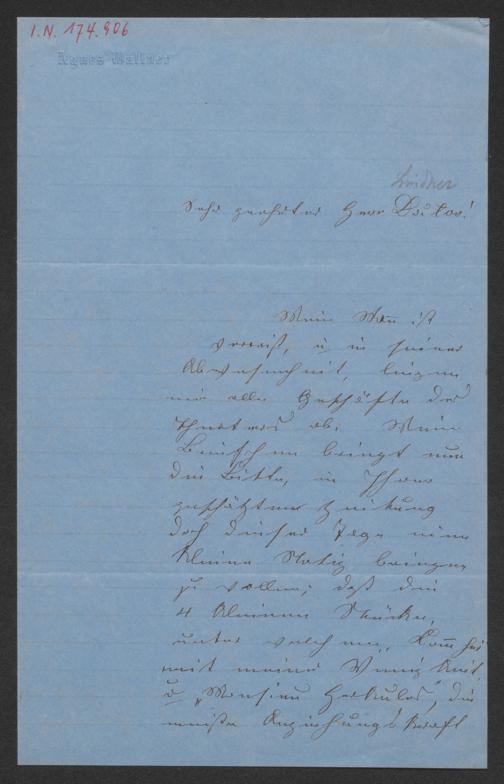 I.N. 174.906
Agnes Wallner
Lindner
Sehr geehrter Herr Doctor!
Mein Man̅ ist
verreist, u in seiner
Abwesenheit, liegen
mir alle Geschäfte des
Theaters ob. Mein
Briefchen bringt nun
die Bitte, in Ihrer
geschätzten Zeitung
doch dieser Tage eine
kleine Notiz bringen
zu wollen; daß die
4 kleinen Stücke,
unter welchen, Kom̅ her
mit meiner Wenigkeit,
u „Monsieu Herkules", die
meiste Anziehungskraft